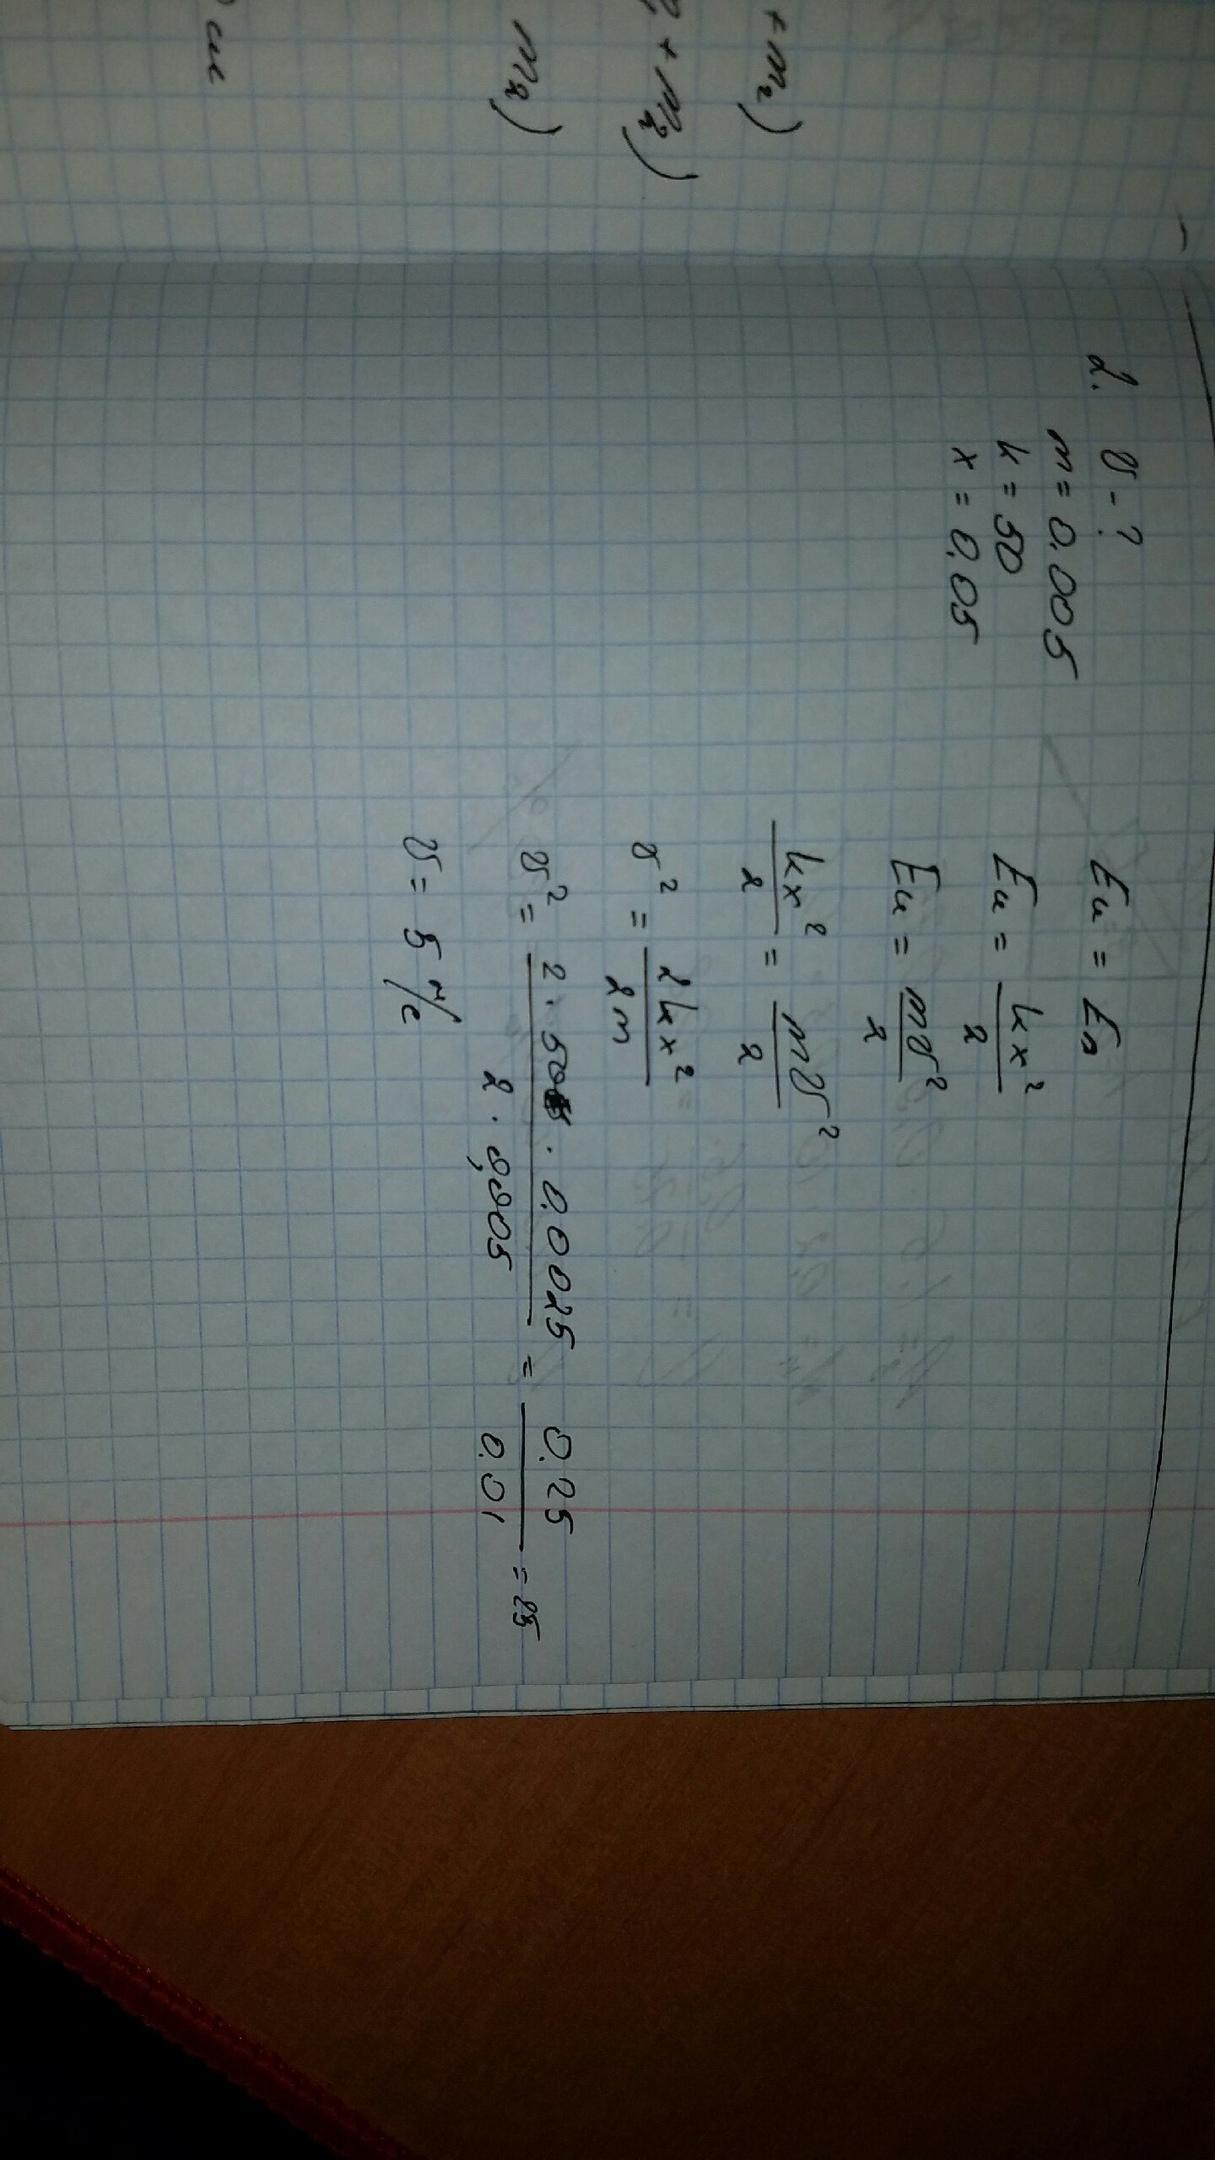 + m₂)
+ m₂)
m₂)
см
2. υ - ?
m = 0.005
k = 50
x = 0,05
Eк = Eп
Eк = kx²/2
Eк = mυ²/2
kx²/2 = mυ²/2
υ² = 2kx²/2m
υ² = 2 · 50 · 0.0025/2 · 0,005 = 0.25/0.01 = 25
υ = 5 м/с